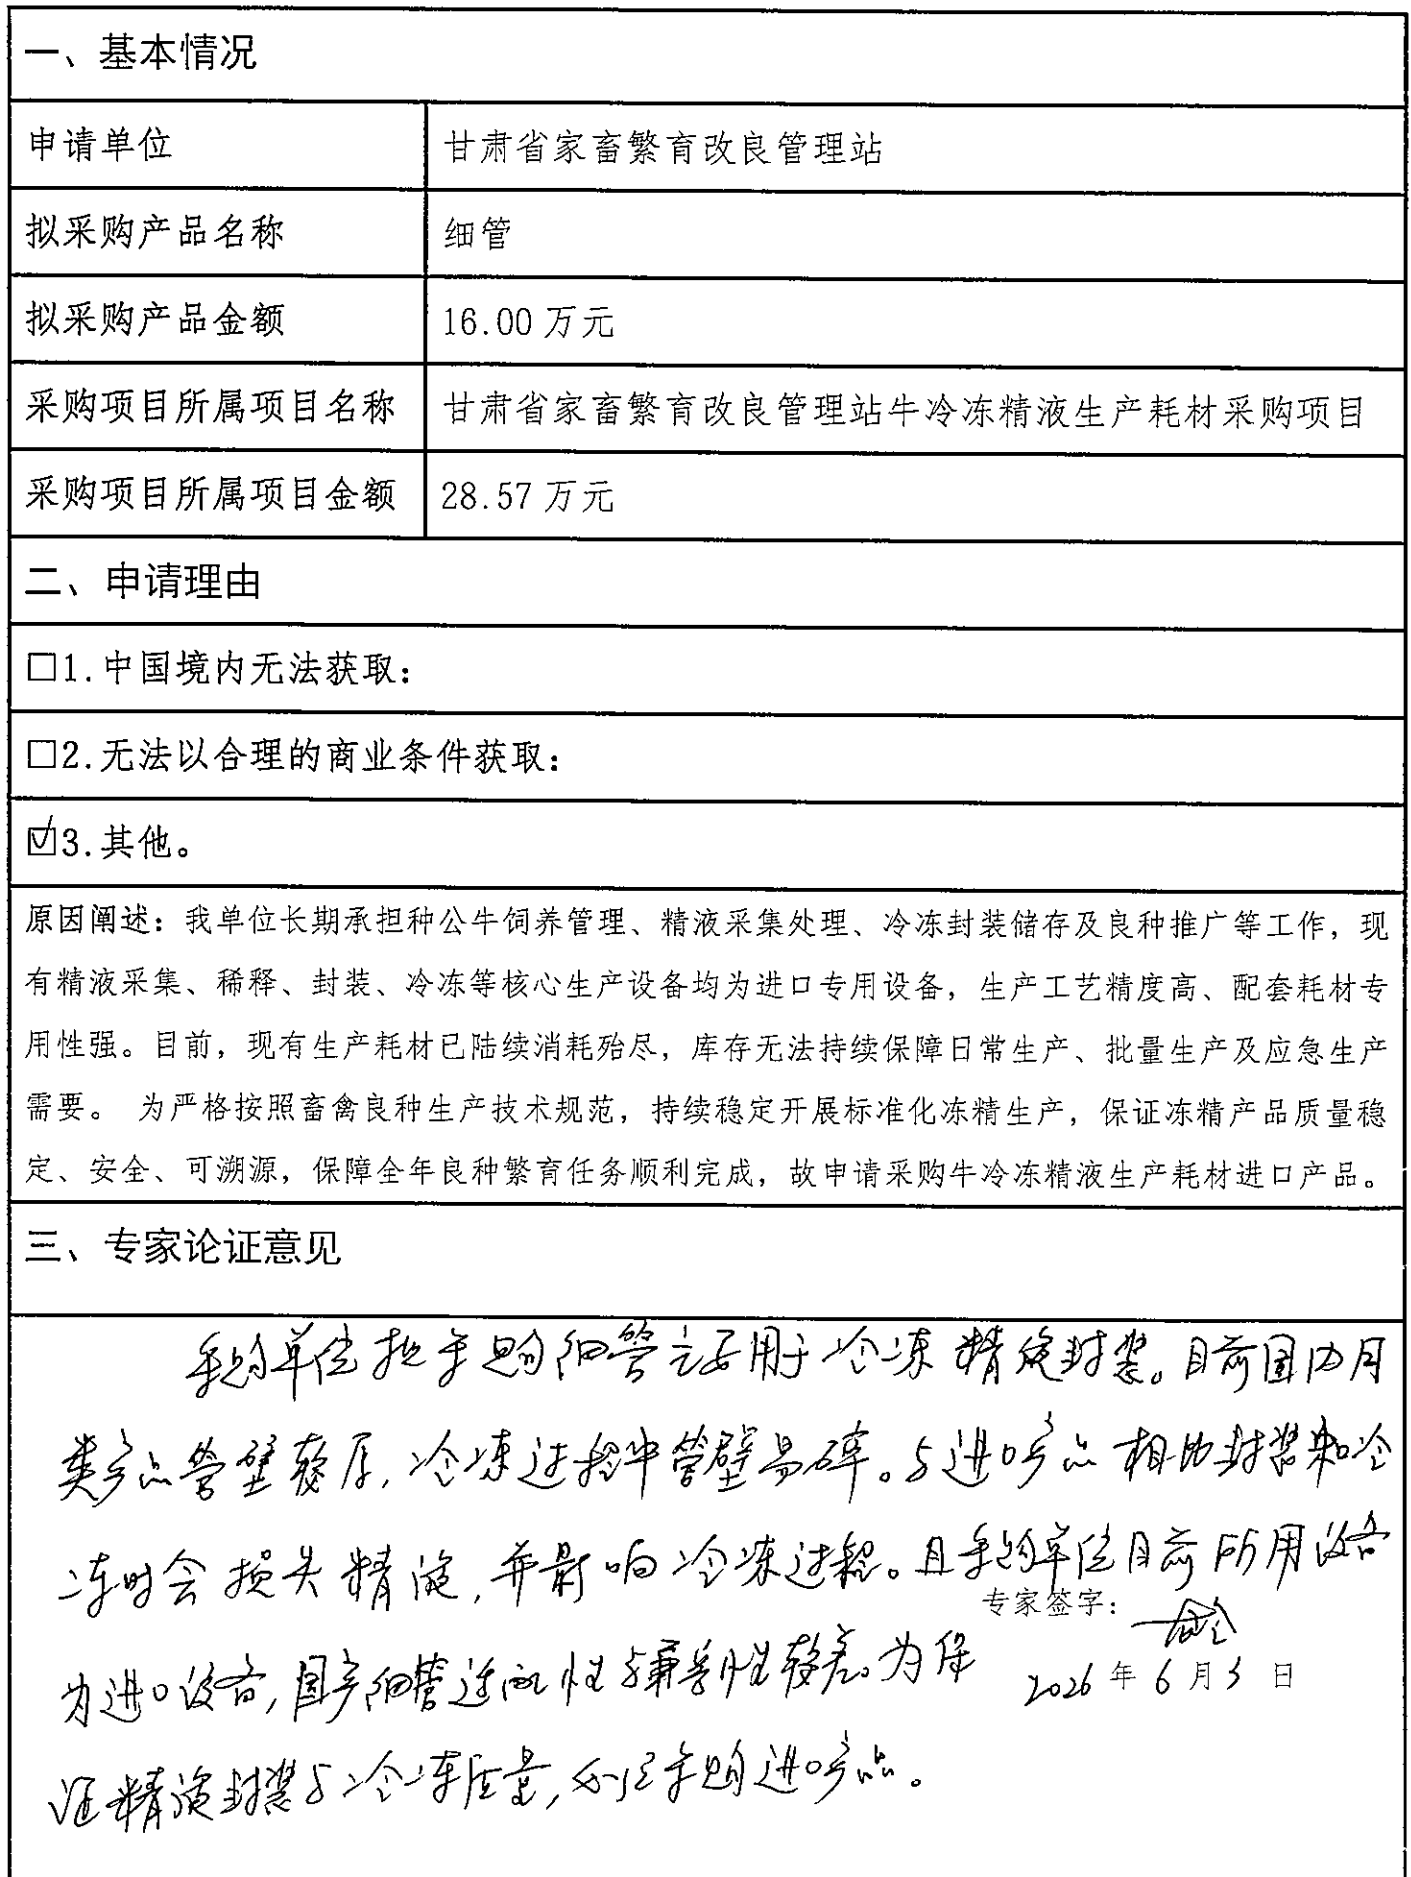 一、基本情况
申请单位 甘肃省家畜繁育改良管理站
拟采购产品名称 细管
拟采购产品金额 16.00万元
采购项目所属项目名称 甘肃省家畜繁育改良管理站牛冷冻精液生产耗材采购项目
采购项目所属项目金额 28.57万元
二、申请理由
□1.中国境内无法获取：
□2.无法以合理的商业条件获取：
☑3.其他。
原因阐述：我单位长期承担种公牛饲养管理、精液采集处理、冷冻封装储存及良种推广等工作，现
有精液采集、稀释、封装、冷冻等核心生产设备均为进口专用设备，生产工艺精度高、配套耗材专
用性强。目前，现有生产耗材已陆续消耗殆尽，库存无法持续保障日常生产、批量生产及应急生产
需要。 为严格按照畜禽良种生产技术规范，持续稳定开展标准化冻精生产，保证冻精产品质量稳
定、安全、可溯源，保障全年良种繁育任务顺利完成，故申请采购牛冷冻精液生产耗材进口产品。
三、专家论证意见
采购单位拟采购细管主要用于冷冻精液封装。目前国内同
类产品管壁较厚，冷冻过程中管壁易碎。与进口产品相比封装和冷
冻时会损失精液，并影响冷冻过程。且采购单位目前所用设备
专家签字：
为进口设备，国产细管适配性与兼容性较差。为保
2026年6月3日
证精液封装与冷冻质量，采购进口产品。